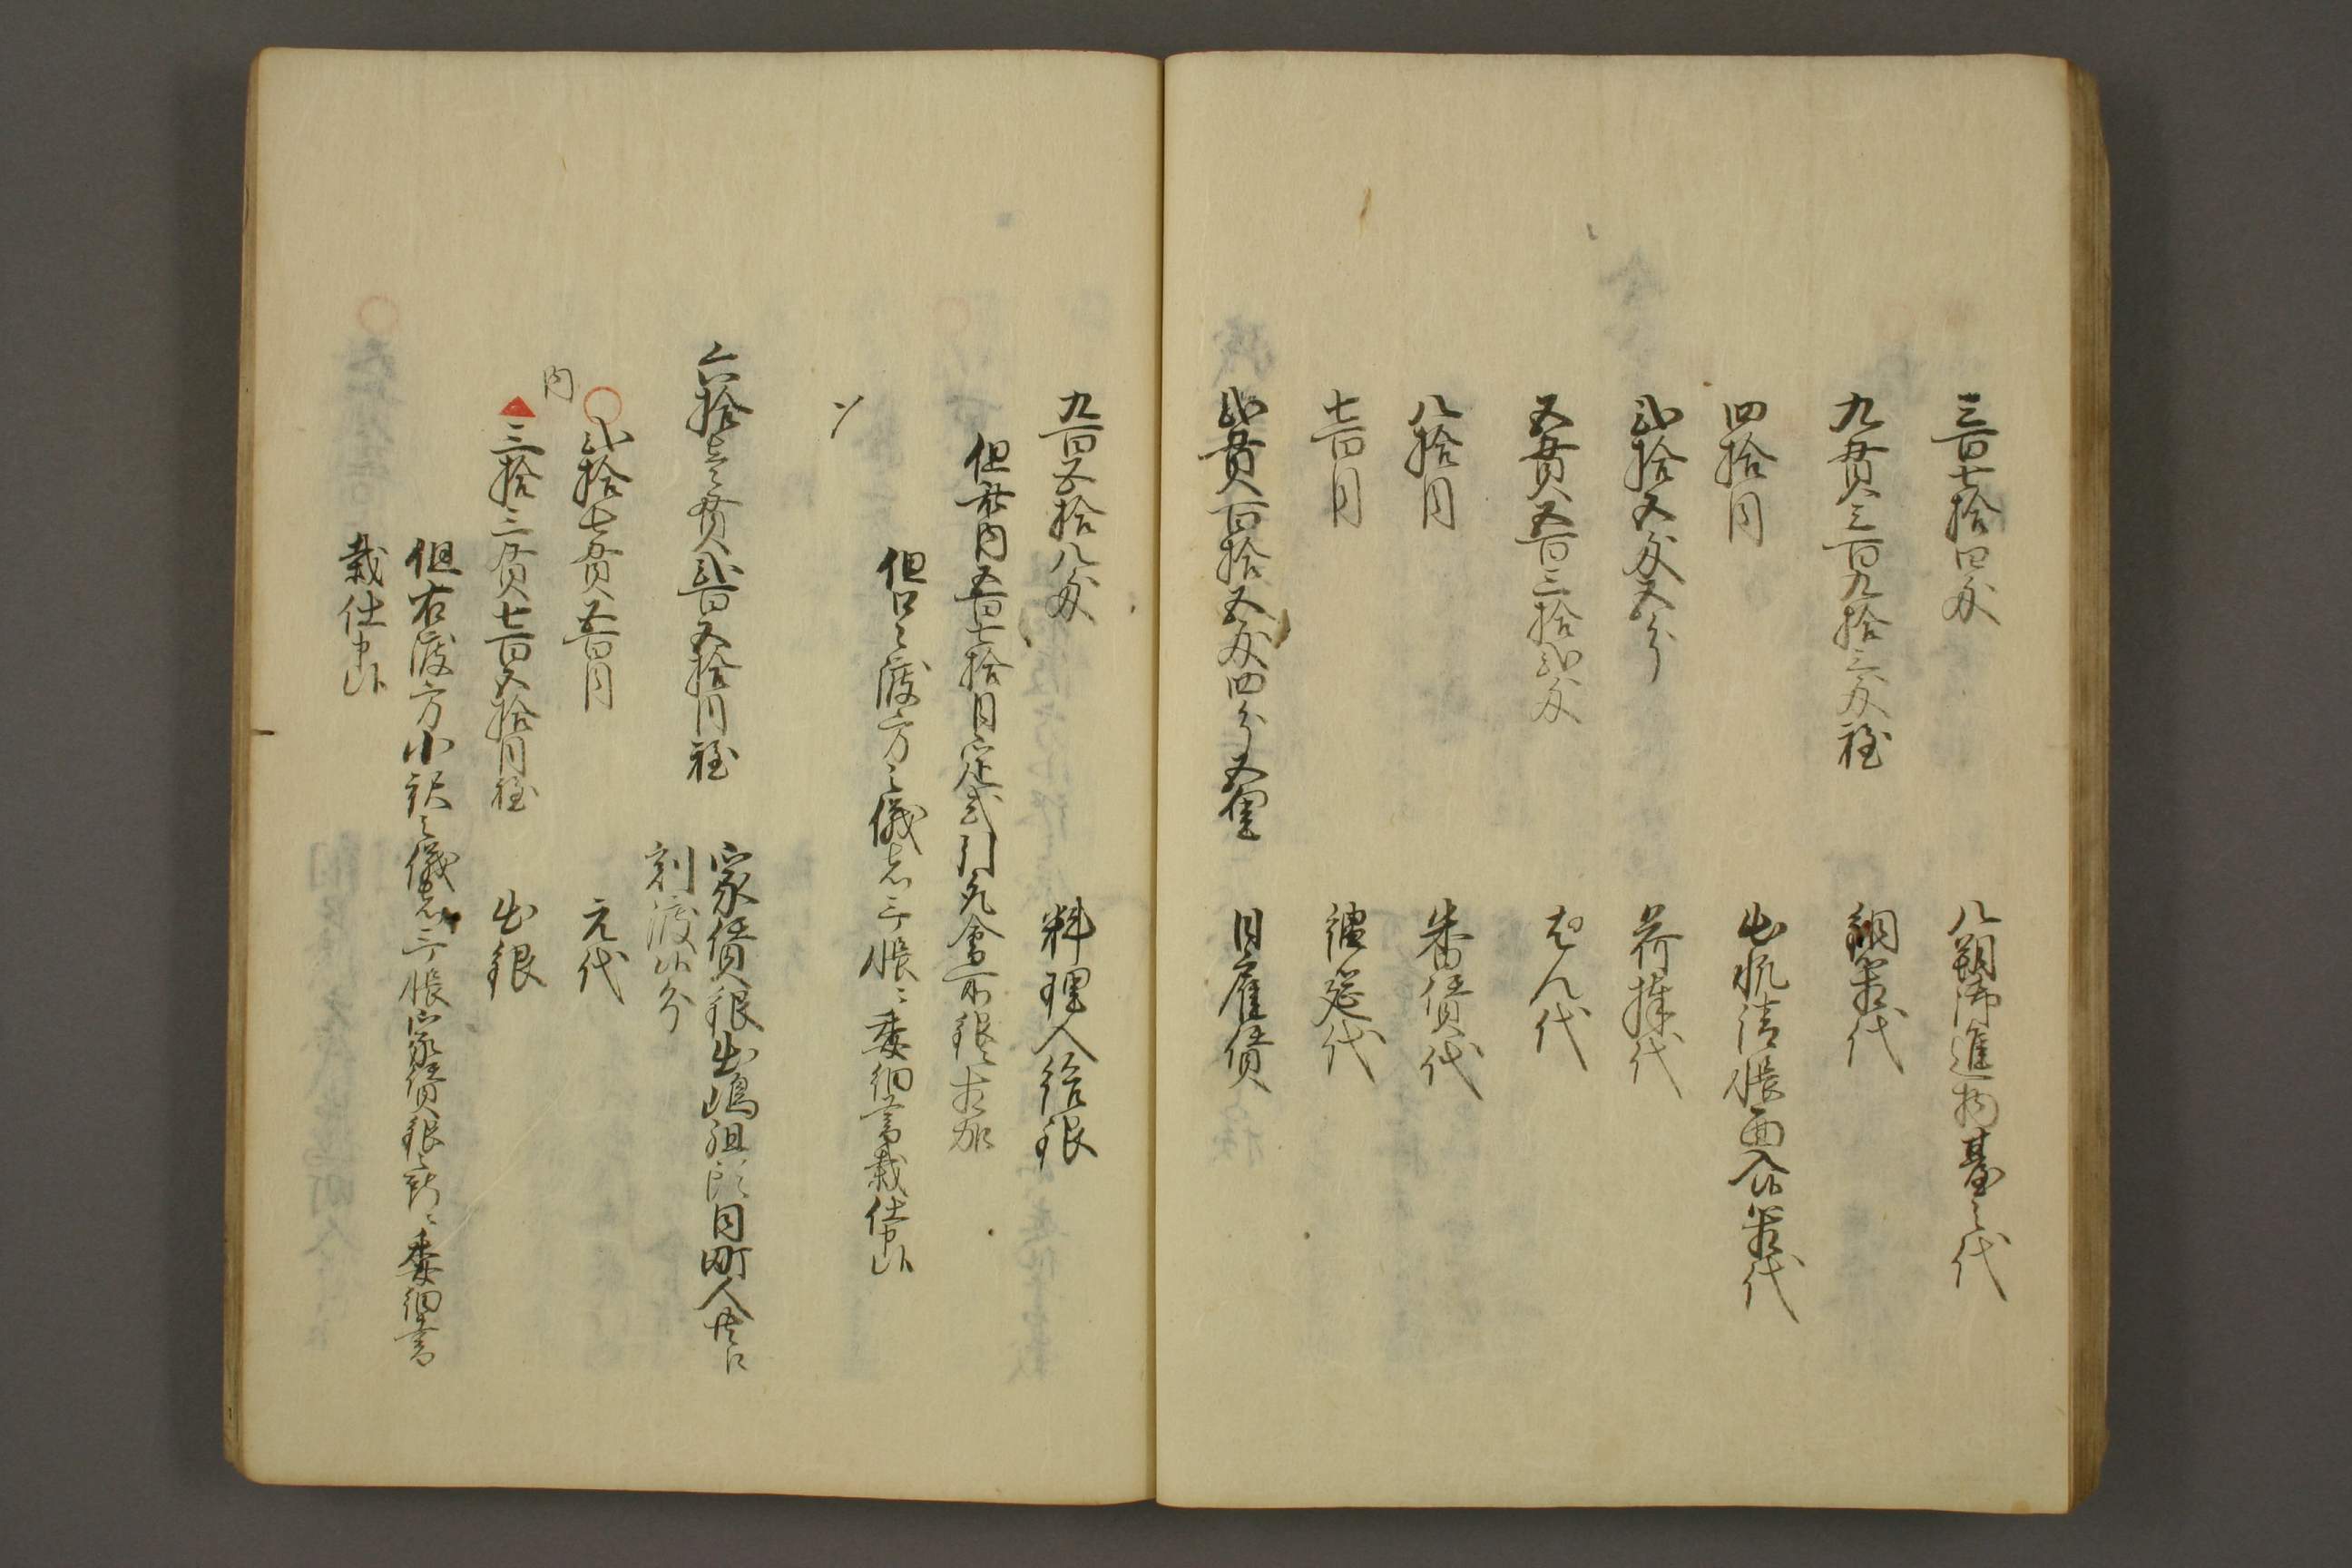 三百七拾四匁　八朔御進物臺之代
九貫三百九拾三匁程　銅箱代
四拾目　出帆諸帳面入候箱代
弐拾五匁五分　荷揮代
五貫五百三拾弐匁　はん代
八拾目　朱番賃代
七百目　縄莚代
弐貫百拾五匁四分五厘　日雇賃
九百五拾八匁　料理人給銀
但此内五百七拾目定式引負會所銀ニ相加
但口々渡方之儀者三ノ帳ニ委細書載仕申候
〆
六拾壱貫弐百五拾目程　家賃銀出嶋組頭同町人共江
割渡候分
内
弐拾七貫五百目　元代
三拾三貫七百五拾目程　出銀
但右渡方小訳之儀者三ノ帳家賃銀之所ニ委細書
載仕申候